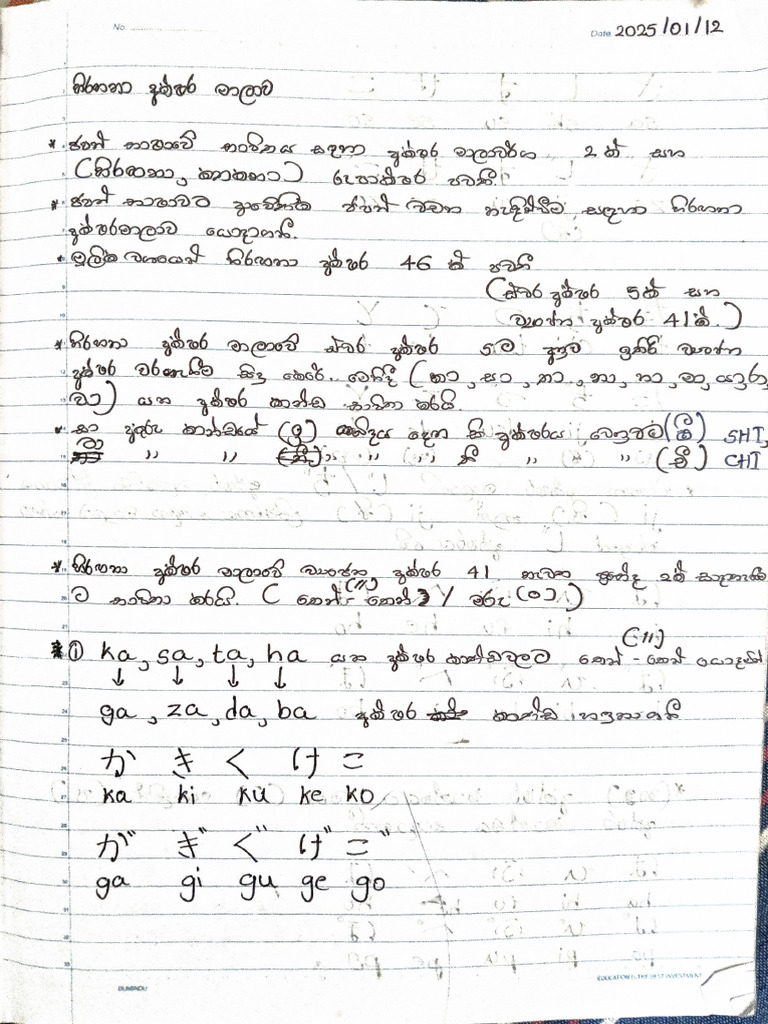 No.
Date 2025/01/12
හිරගනා අක්ෂර මාලාව
* ජපන් භාෂාවේ භාවිතය සඳහා අක්ෂර මාලාවර්ග 2ක් සහ
(හිරගනා, කතකනා) රූපාක්ෂර පවතී.
* ජපන් භාෂාවට ආවේණික ජපන් වචන හැඳින්වීම සඳහා හිරගනා
අක්ෂරමාලාව යොදාගනී.
* මූලික වශයෙන් හිරගනා අක්ෂර 46 ක් පවතී
(ස්වර අක්ෂර 5ක් සහ
ව්‍යංජන අක්ෂර 41කි.)
* හිරගනා අක්ෂර මාලාවේ ස්වර අක්ෂර 5ම අනුව ඉතිරි ව්‍යංජන
අක්ෂර වරනැගීම සිදු කෙරේ. මෙහිදී (කා, සා, තා, නා, හා, මා, යා, රා,
වා) යන අක්ෂර කාණ්ඩ භාවිතා කරයි.
* සා අකුරු කාණ්ඩයේ (ඉ) ශබ්දය දෙන සි අක්ෂරය වෙනුවට (ෂි) SHI,
තා ,, ,, ,, ,, ති ,, ,, (චි) CHI
* හිරගනා අක්ෂර මාලාවේ ව්‍යංජන අක්ෂර 41 නැවත ප්‍රභේද 2ක්
ට භාවිතා කරයි. ( තෙන් - තෙන් (") / මරු (o) )
* ① ka, sa, ta, ha යන අක්ෂර කාණ්ඩවලට තෙන් - තෙන් (") යොදමින්
↓ ↓ ↓ ↓
ga, za, da, ba අක්ෂර කාණ්ඩ හඳුනාගනී
か き く け こ
ka ki ku ke ko
が ぎ ぐ げ ご
ga gi gu ge go
EDUCATION IS THE BEST INVESTMENT
DUMINDU